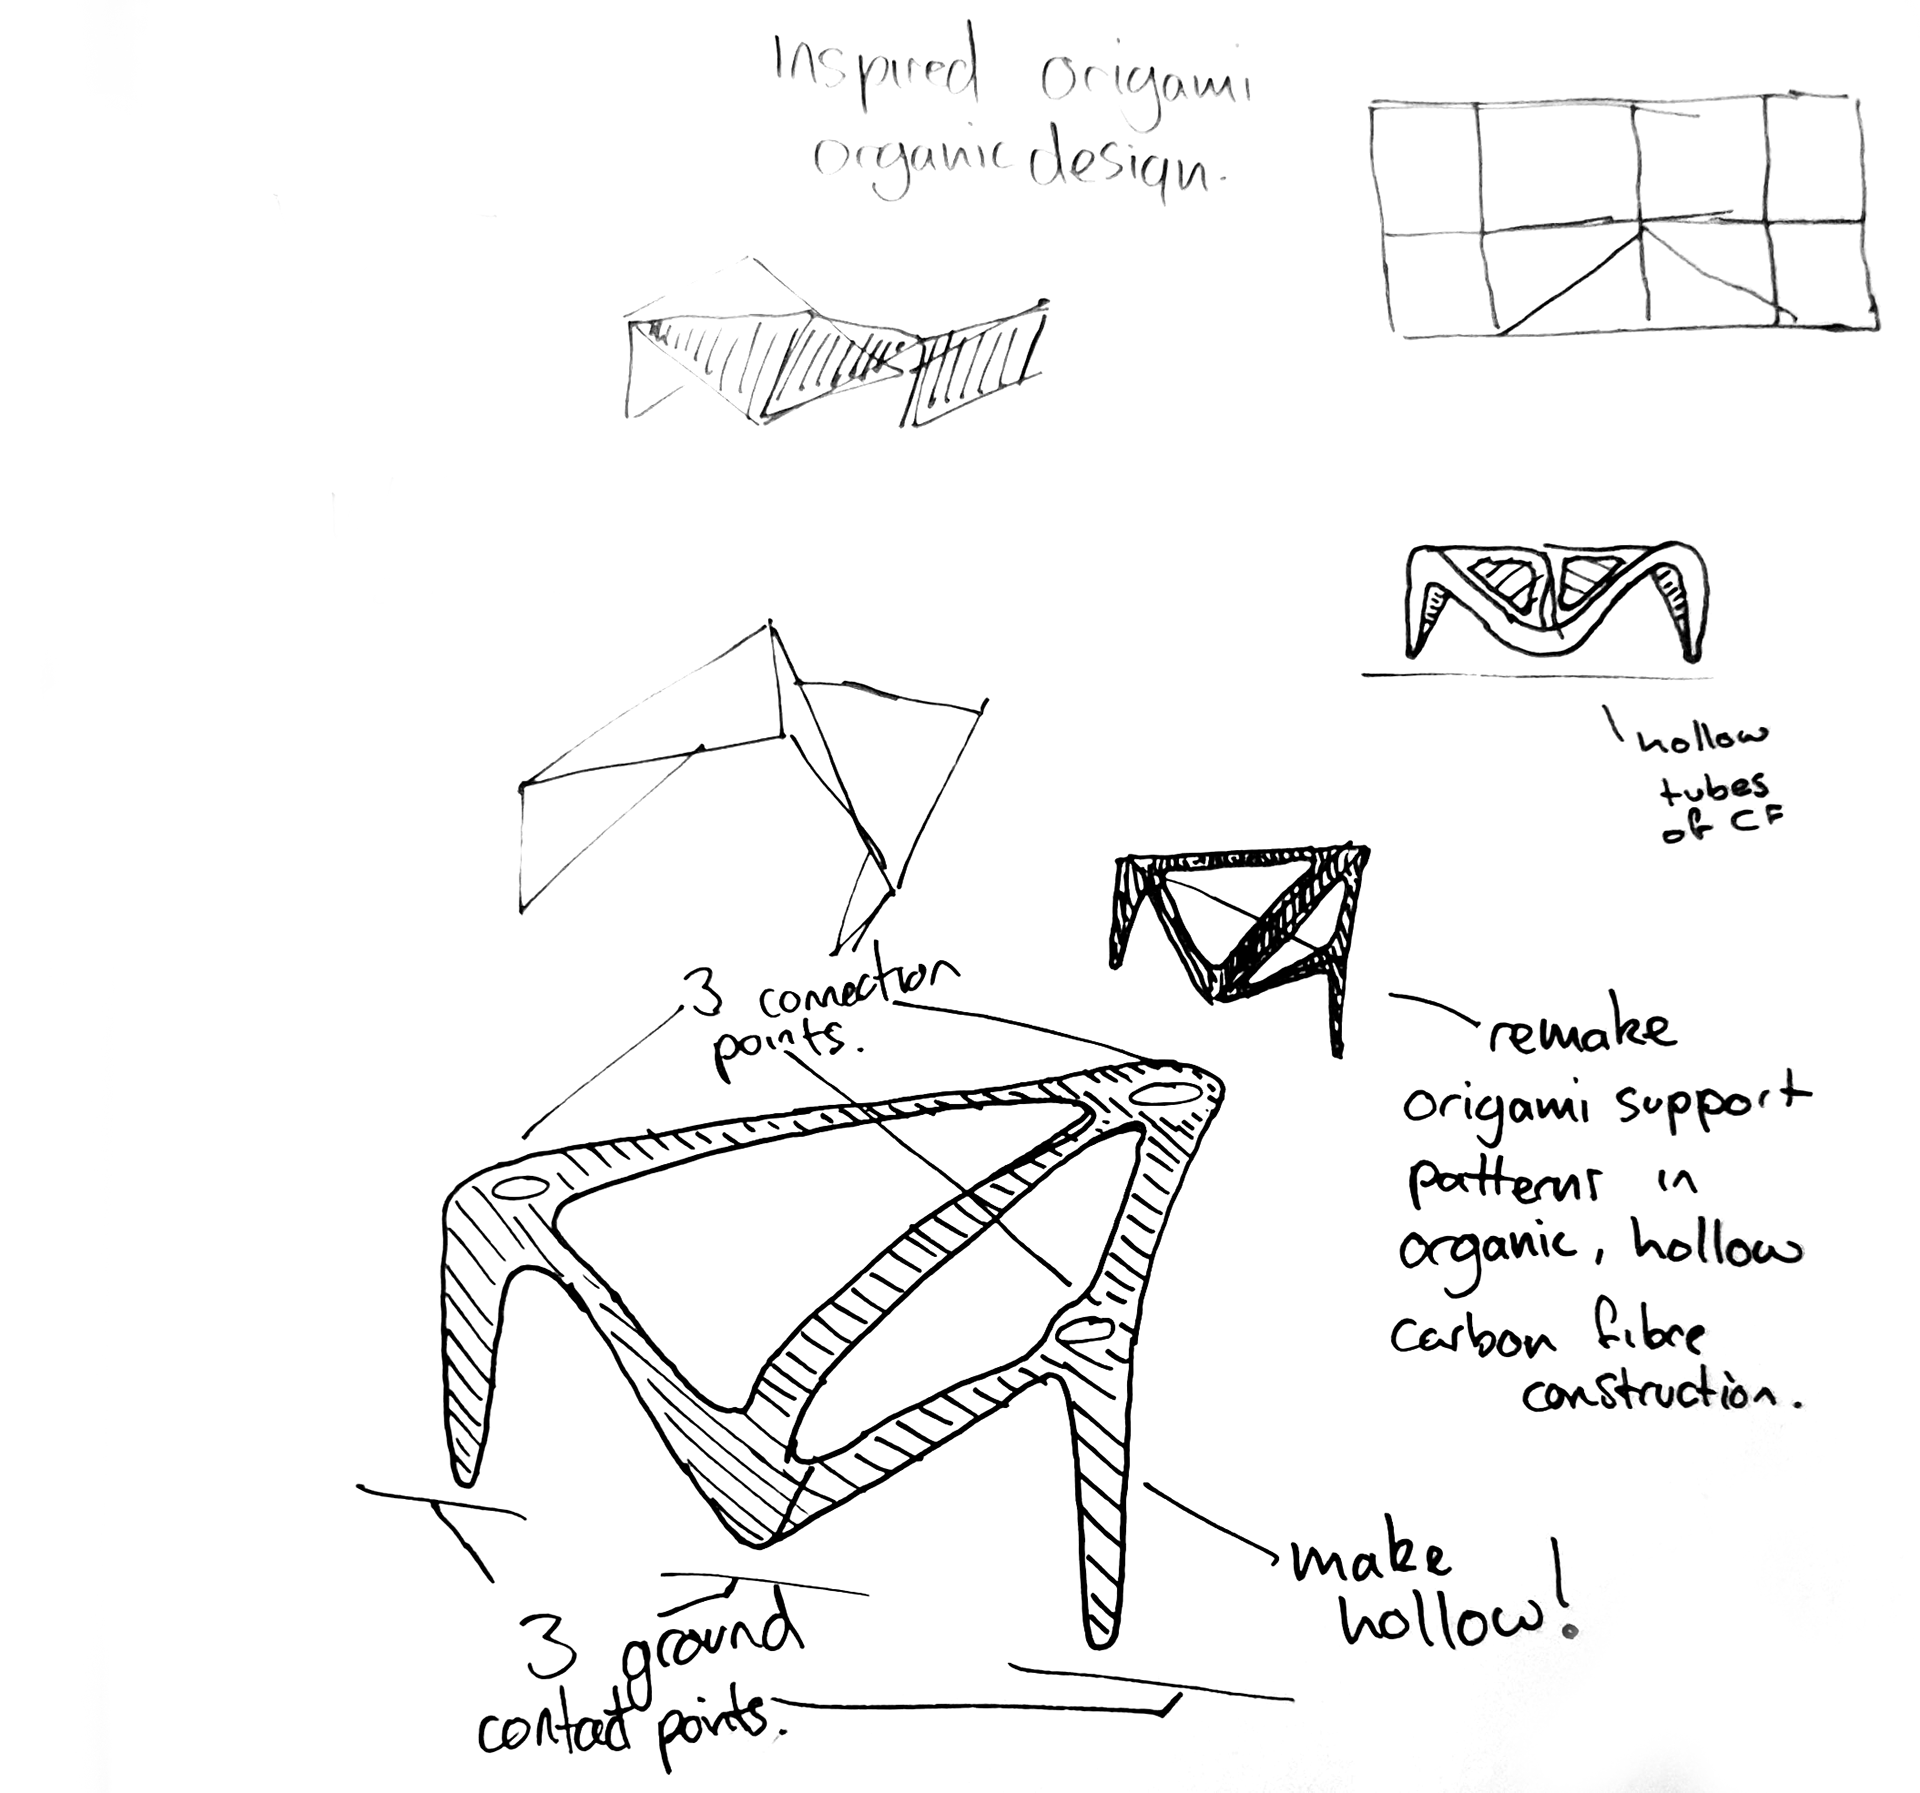 Inspired origami
organic design.
hollow
tubes
of CF
3 connection
points.
remake
origami support
patterns in
organic, hollow
carbon fibre
construction.
make
hollow!
3 ground
contact points.